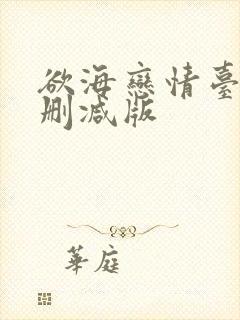 欲海戀情臺
刪減版
華庭